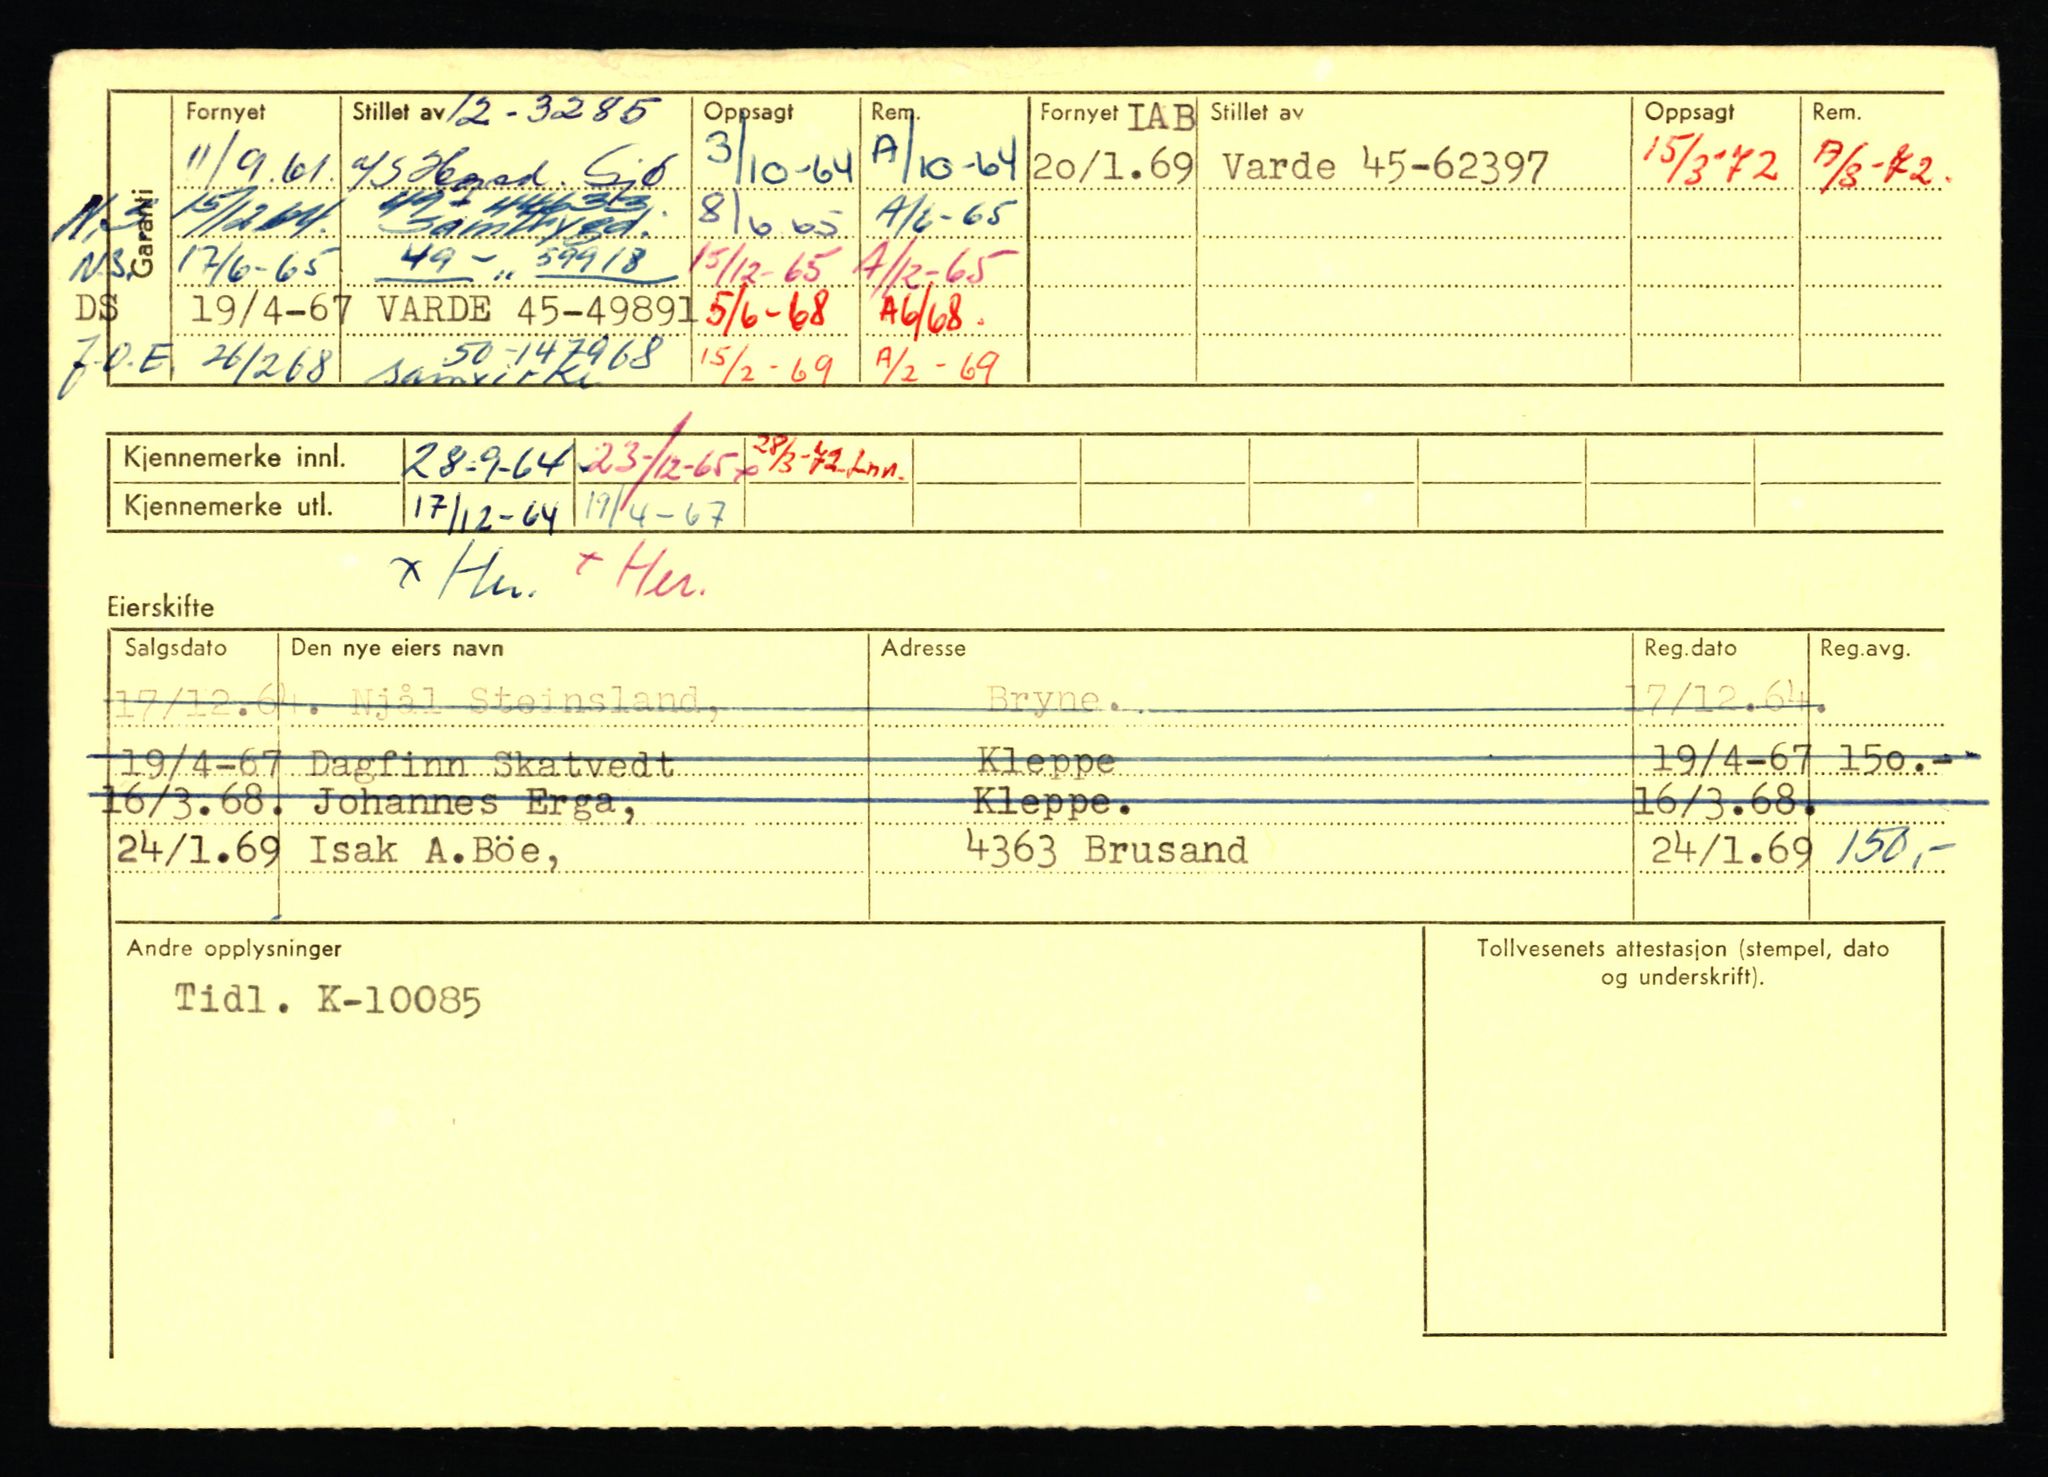 Garanti
Fornyet Stillet av 12-3285 Oppsagt Rem. Fornyet IAB Stillet av Oppsagt Rem.
11/9.61. 3/10-64 A/10-64 20/1.69 Varde 45-62397 15/3-72 A/3-72.
N.S. 15/12 64. Samtrygd. 8/6 65 A/6-65
N.S. 17/6-65 49- " 59918 15/12-65 A/12-65
DS 19/4-67 VARDE 45-49891 5/6-68 A6/68.
J.O.E. 26/2 68 50-147968 samvirke 15/2-69 A/2-69
Kjennemerke innl. 28-9-64 23/12-65 x 28/3-72 Inn.
Kjennemerke utl. 17/12-64 19/4-67
x Her. + Her.
Eierskifte
Salgsdato Den nye eiers navn Adresse Reg.dato Reg.avg.
17/12.64. Njål Steinsland, Bryne. 17/12.64.
19/4-67 Dagfinn Skatvedt Kleppe 19/4-67 150.-
16/3.68. Johannes Erga, Kleppe. 16/3.68.
24/1.69 Isak A.Böe, 4363 Brusand 24/1.69 150,-
Andre opplysninger
Tidl. K-10085
Tollvesenets attestasjon (stempel, dato
og underskrift).